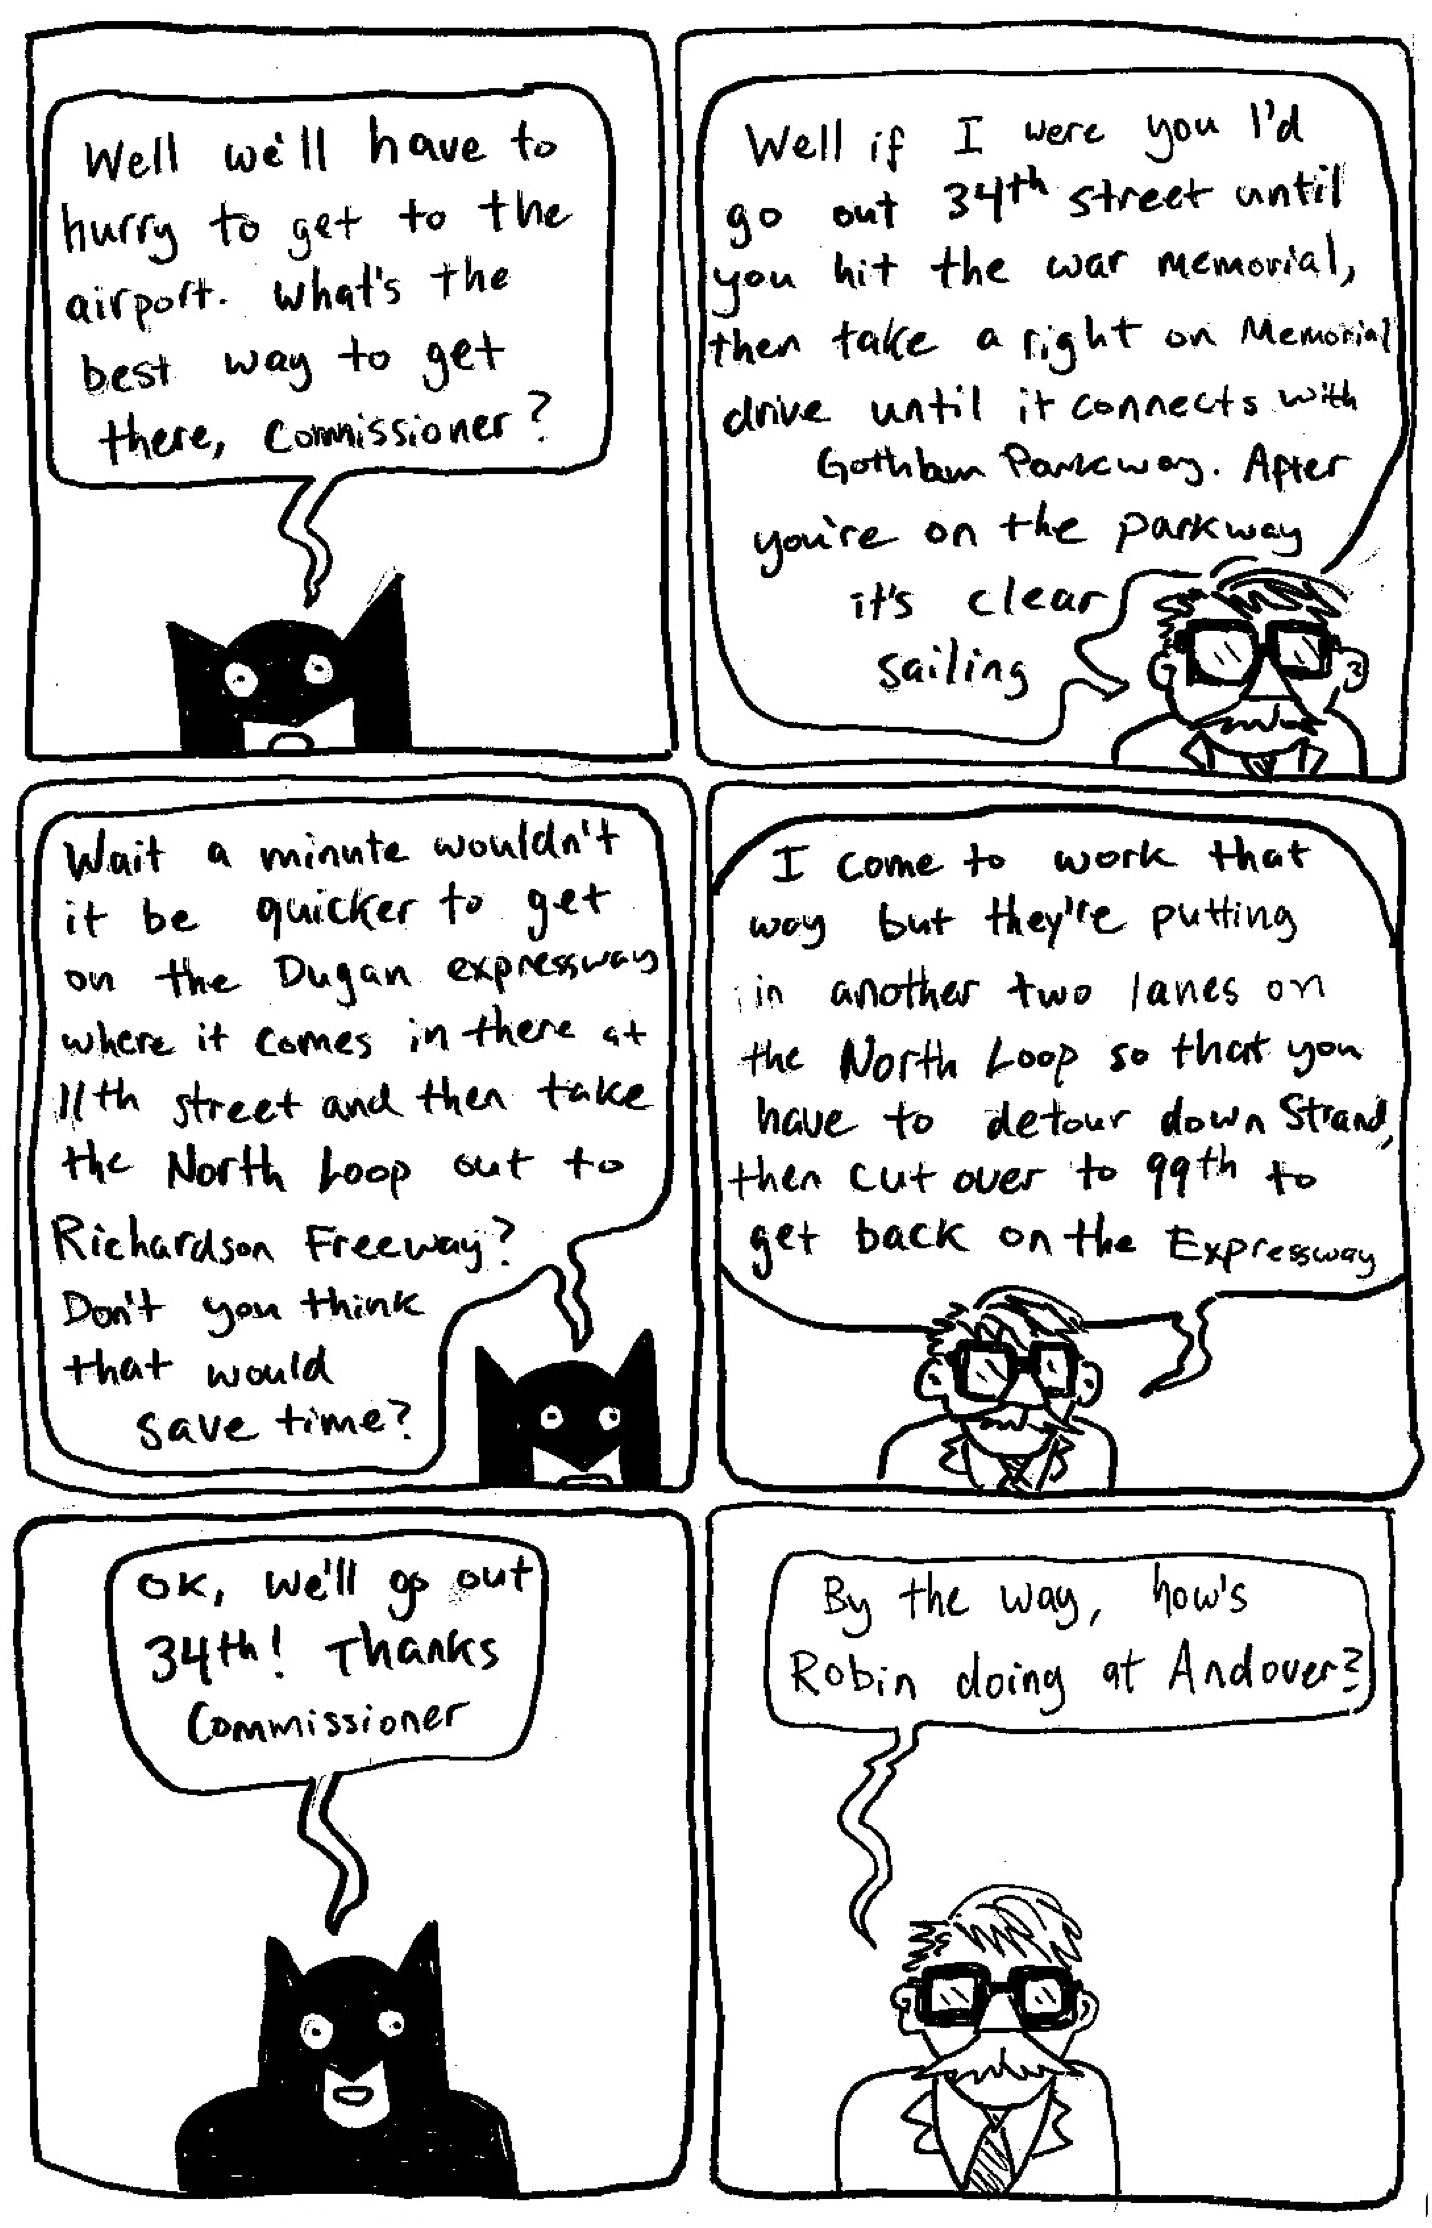 Well we'll have to
hurry to get to the
airport. What's the
best way to get
there, Commissioner?
Well if I were you I'd
go out 34th street until
you hit the war memorial,
then take a right on Memorial
drive until it connects with
Gotham Parkway. After
you're on the parkway
it's clear
sailing
Wait a minute wouldn't
it be quicker to get
on the Dugan expressway
where it comes in there at
11th street and then take
the North Loop out to
Richardson Freeway?
Don't you think
that would
save time?
I come to work that
way but they're putting
in another two lanes on
the North Loop so that you
have to detour down Strand,
then cut over to 99th to
get back on the Expressway
OK, we'll go out
34th! Thanks
Commissioner
By the way, how's
Robin doing at Andover?